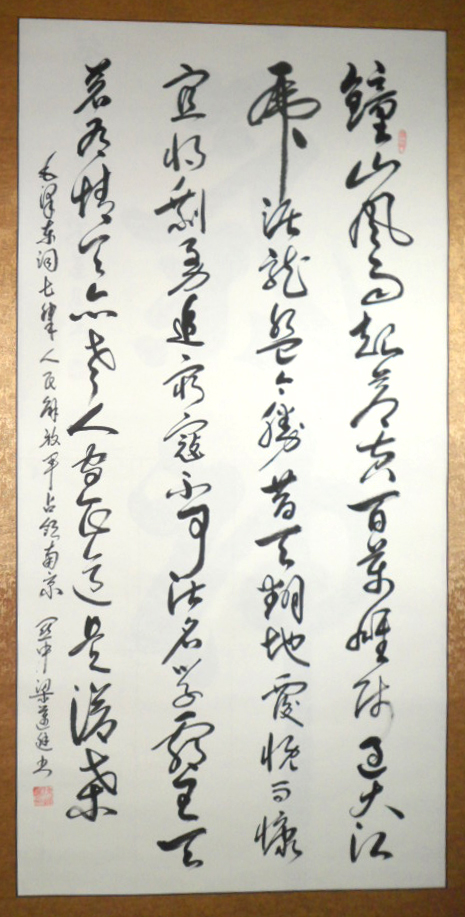 鐘山風雨起蒼黃百萬雄師過大江
虎踞龍盤今勝昔天翻地覆慨而慷
宜將剩勇追窮寇不可沽名學霸王天
若有情天亦老人間正道是滄桑
毛澤東詞七律人民解放軍占領南京 關中梁書